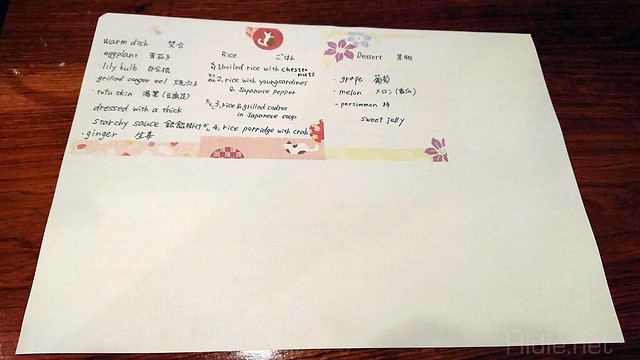 warm dish 焚合
eggplant 賀茄子
・lily bulb 百合根
grilled conger eel 焼穴子
・tofu skin 湯葉
dressed with a thick
starchy sauce 銀餡掛け
・ginger 生姜
Rice ごはん
1, boiled rice with chester nuts
2, rice with young sardines
& Japanese pepper
3, rice & grilled codroe
in Japanese soup
4, rice porridge with crab
Dessert 果物
・grape 葡萄
・melon メロン
-persimmon 柿
sweet jelly